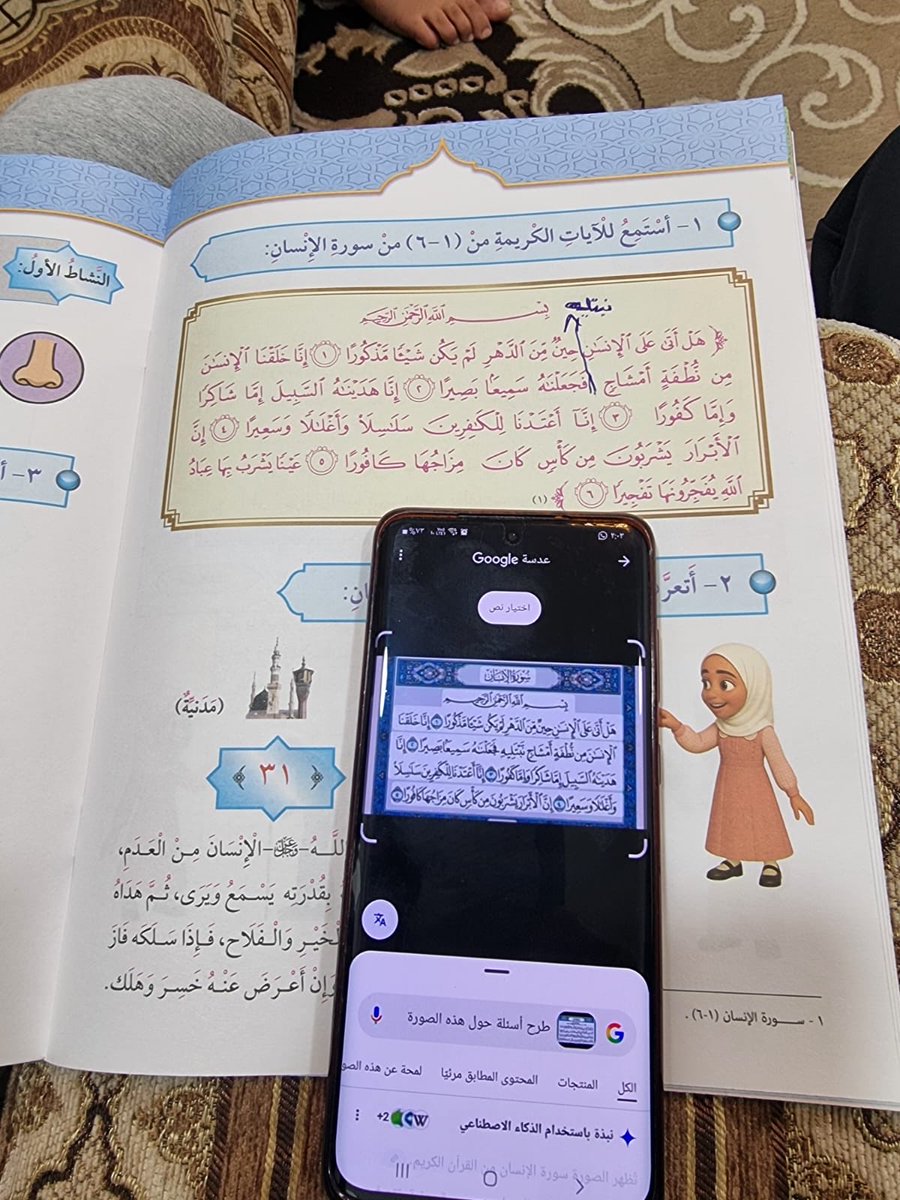 ١- أسْتَمِعُ للآياتِ الكْريمةِ منْ (١-٦) منْ سورةِ الإنْسانِ:
النَّشاطُ الأولُ:
نبتليه
بِسْمِ اللَّهِ الرَّحْمَٰنِ الرَّحِيمِ
﴿ هَلْ أَتَىٰ عَلَى ٱلْإِنسَٰنِ حِينٌ مِّنَ ٱلدَّهْرِ لَمْ يَكُن شَيْـًٔا مَّذْكُورًا ١ إِنَّا خَلَقْنَا ٱلْإِنسَٰنَ
مِن نُّطْفَةٍ أَمْشَاجٍ فَجَعَلْنَٰهُ سَمِيعًۢا بَصِيرًا ٢ إِنَّا هَدَيْنَٰهُ ٱلسَّبِيلَ إِمَّا شَاكِرًا
وَإِمَّا كَفُورًا ٣ إِنَّآ أَعْتَدْنَا لِلْكَٰفِرِينَ سَلَٰسِلَا۟ وَأَغْلَٰلًا وَسَعِيرًا ٤ إِنَّ
ٱلْأَبْرَارَ يَشْرَبُونَ مِن كَأْسٍ كَانَ مِزَاجُهَا كَافُورًا ٥ عَيْنًا يَشْرَبُ بِهَا عِبَادُ
ٱللَّهِ يُفَجِّرُونَهَا تَفْجِيرًا ٦ ﴾ (١)
٣- أ
٢- أَتعرَّ
انِ:
(مَدَنيَّةٌ)
﴿ ٣١ ﴾
اللَّـهُ -عَزَّوَجَلَّ- الْإِنْسَانَ مِـنْ الْعَدَمِ،
بِقُدْرَتِه يَسْـمَعُ وَيَرَى، ثُـمَّ هَدَاهُ
لْخَيْـرِ وَالْـفَلَاح، فَـإِذَا سَـلَكَه فَازَ
وَإِنْ أَعْـرَضَ عَنْـهُ خَسِـرَ وَهَلَك.
١- سورة الإنسان (١-٦) .
٢:٠٢
٪٧٣
عدسة Google
اختيار نص
سُورَةُ الإِنسَانِ
بِسْمِ اللَّهِ الرَّحْمَٰنِ الرَّحِيمِ
هَلْ أَتَىٰ عَلَى ٱلْإِنسَٰنِ حِينٌ مِّنَ ٱلدَّهْرِ لَمْ يَكُن شَيْـًٔا مَّذْكُورًا ١ إِنَّا خَلَقْنَا
ٱلْإِنسَٰنَ مِن نُّطْفَةٍ أَمْشَاجٍ نَّبْتَلِيهِ فَجَعَلْنَٰهُ سَمِيعًۢا بَصِيرًا ٢ إِنَّا
هَدَيْنَٰهُ ٱلسَّبِيلَ إِمَّا شَاكِرًا وَإِمَّا كَفُورًا ٣ إِنَّآ أَعْتَدْنَا لِلْكَٰفِرِينَ سَلَٰسِلَا۟
وَأَغْلَٰلًا وَسَعِيرًا ٤ إِنَّ ٱلْأَبْرَارَ يَشْرَبُونَ مِن كَأْسٍ كَانَ مِزَاجُهَا كَافُورًا ٥
طرح أسئلة حول هذه الصورة
الكل المنتجات المحتوى المطابق مرئيًا لمحة عن هذه الصو
نبذة باستخدام الذكاء الاصطناعي
+2
تُظهر الصورة سورة الإنسان من القرآن الكريم